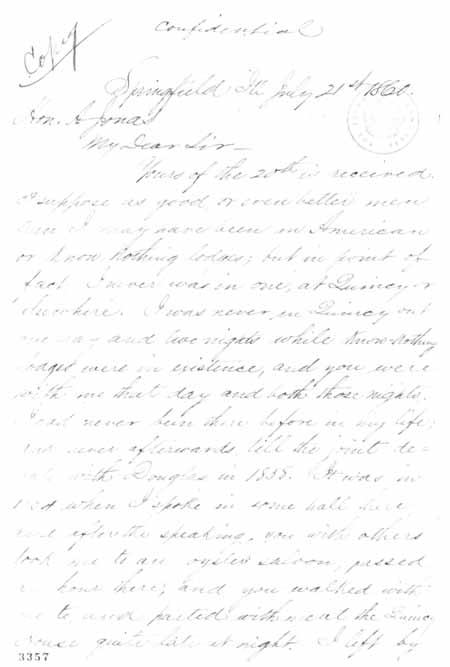 Confidential
Copy
Springfield Ills July 21st 1860.
Hon. A Jonas
My Dear Sir—
Yours of the 20th is received.
I suppose as good, or even better men
than I may have been in American
or Know Nothing lodges; but in point of
fact I never was in one, at Quincy or
elsewhere. I was never in Quincy but
one day and two nights while Know-Nothing
lodges were in existence, and you were
with me that day and both those nights.
I had never been there before in my life;
and never afterwards till the joint de-
bate with Douglas in 1858. It was in
when I spoke in some hall there,
and after the speaking, you with others
took me to an oyster saloon, passed
an hour there; and you walked with
me to, and parted with me at the Quincy
House quite late at night. I left by
3357